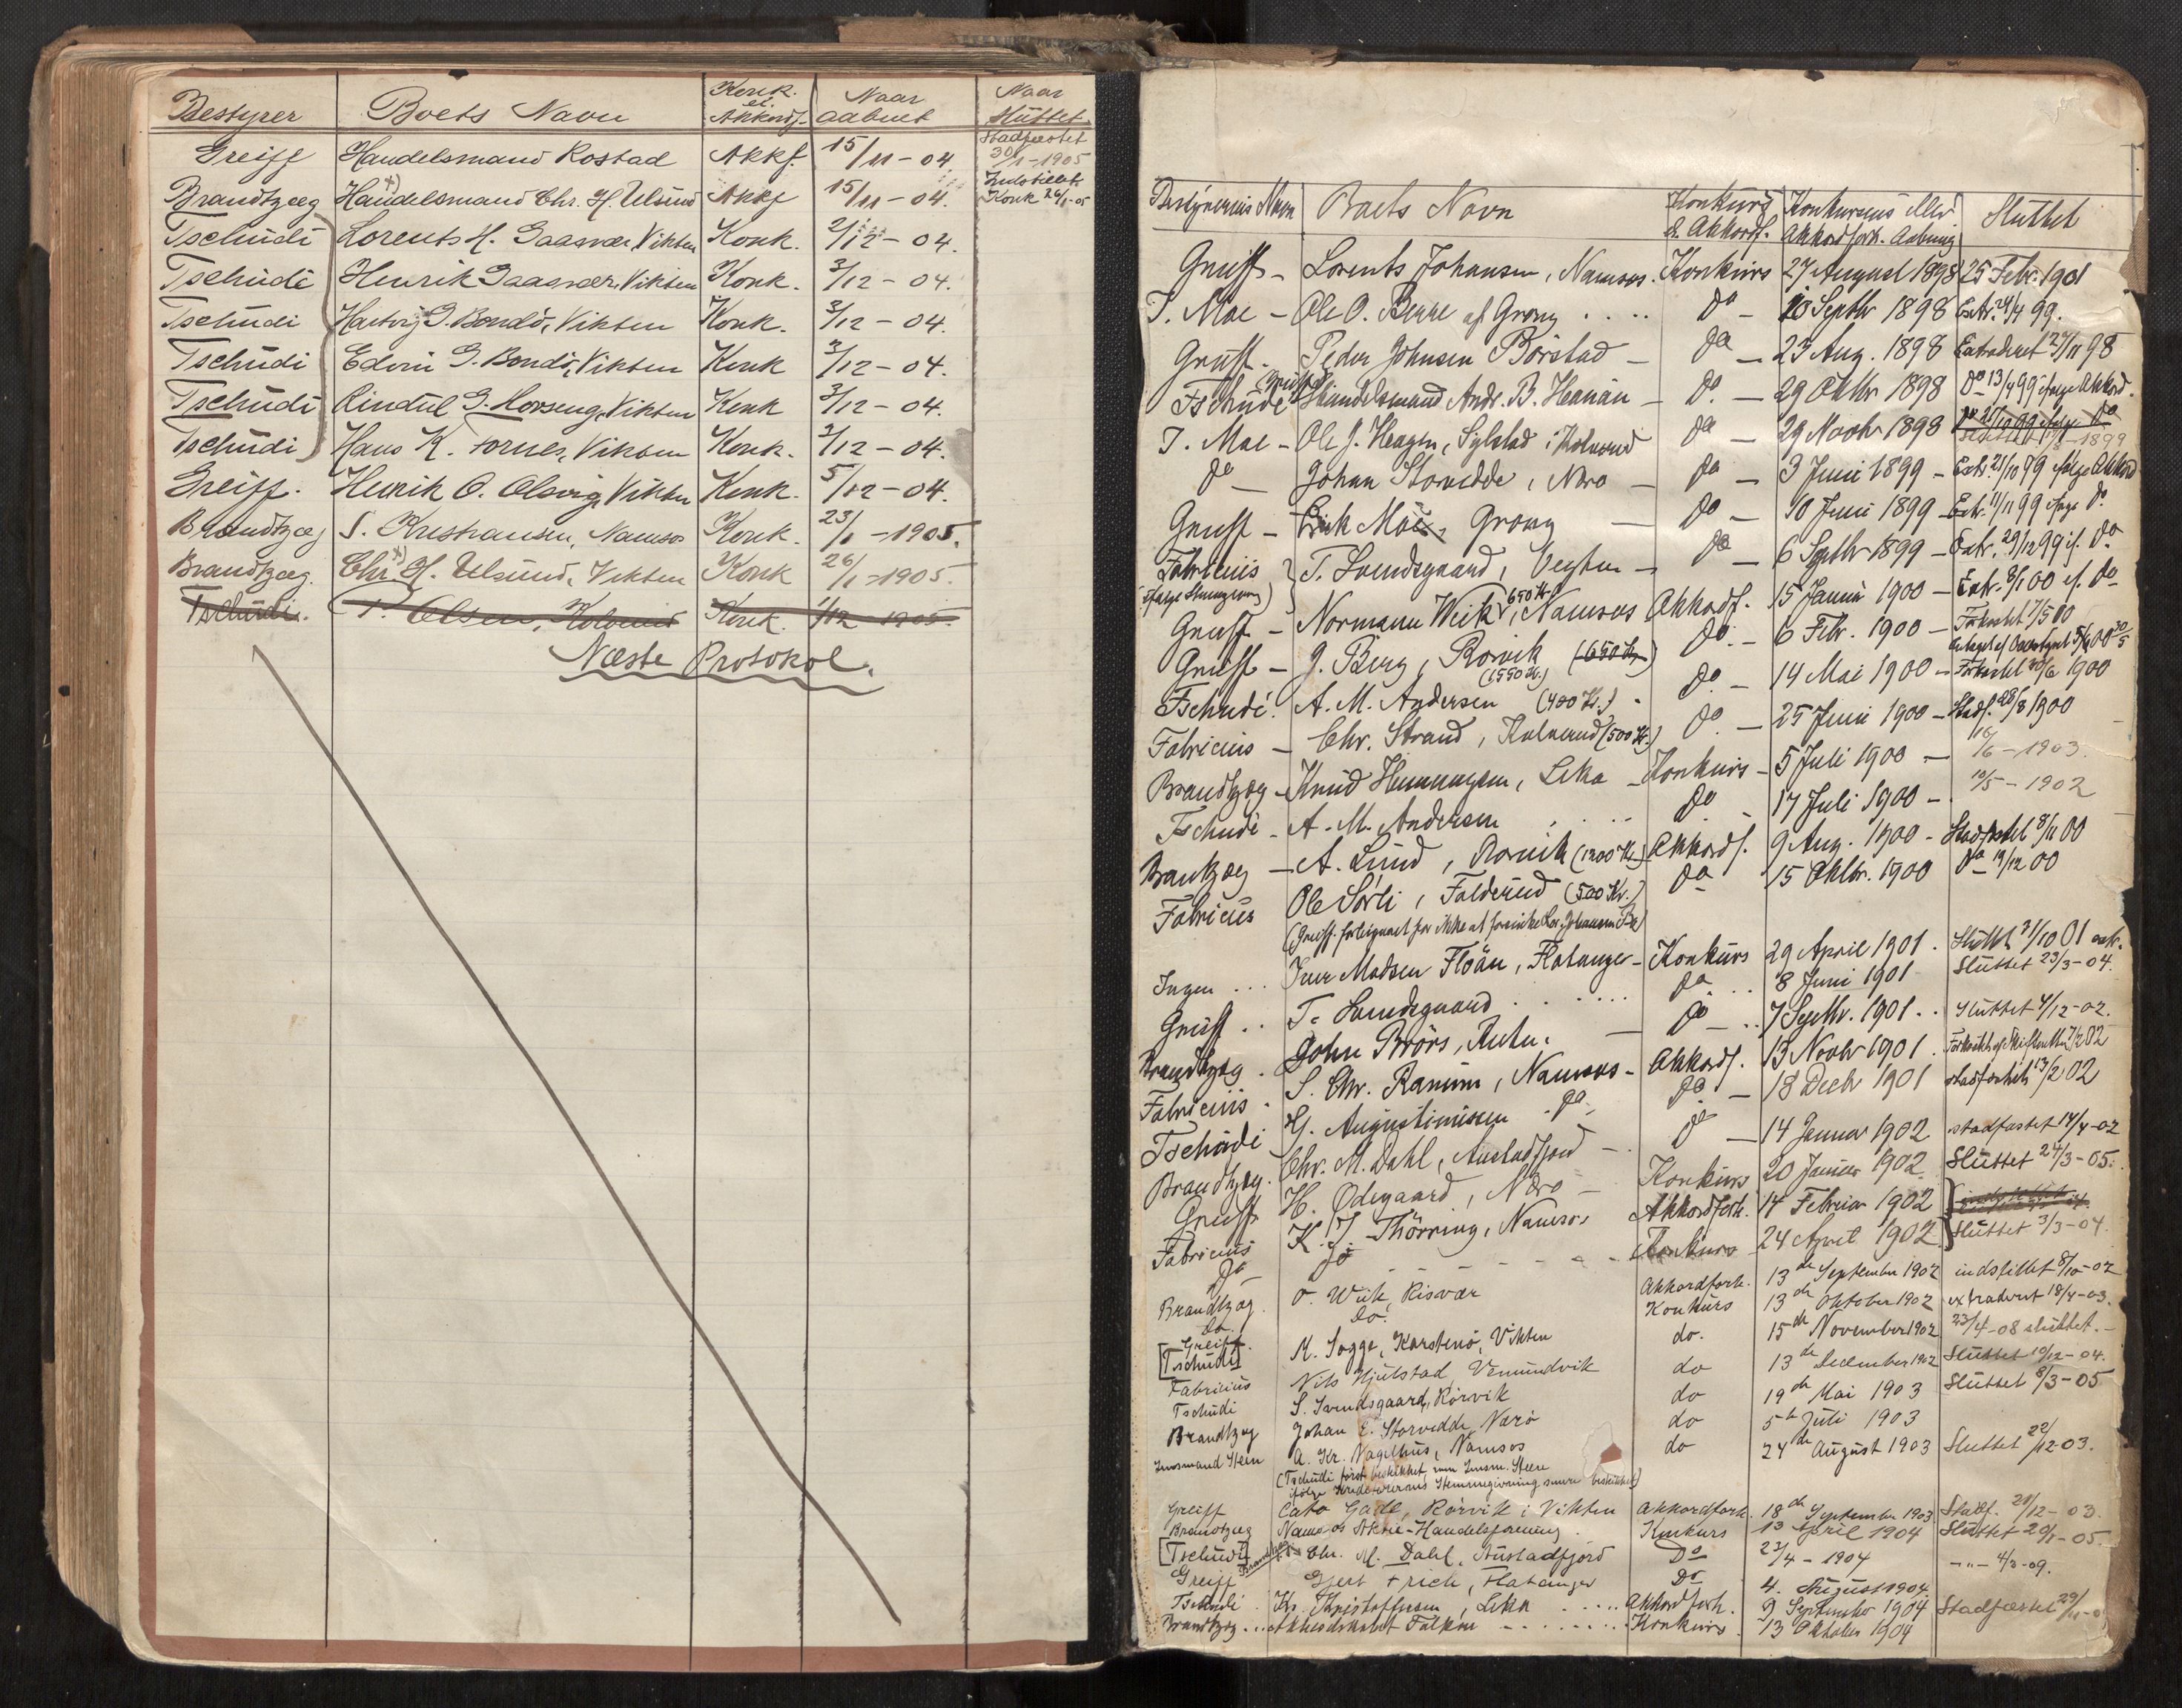 Bestyrer Boets Navn Konk. el. Akkordf. Naar aabnet Naar sluttet
Greiff Handelsmand Rostad Akkf. 15/11-04. Stadfæstet 30/1-1905
Brandtzæg Handelsmand Chr. H. Ulsund x) Akkf 15/11-04. Indstillet Konk 26/1-05
Tschudi Lorents H. Gaasvær, Vikten Konk. 2/12-04.
Tschudi Henrik Gaasvær, Vikten Konk. 3/12-04.
Tschudi Hartvig G. Bondö, Vikten Konk. 3/12-04.
Tschudi Edvin G. Bondö, Vikten Konk 3/12-04.
Tschudi G. Horseng, Vikten Konk 3/12-04.
Tschudi Hans K. Fornes, Vikten Konk. 3/12-04.
Greiff. Henrik O. Vikten Konk. 5/12-04.
Brandtzæg S. Kristiansen, Namsos Konk. 23/1-1905.
Brandtzæg. Chr. x) H. Ulsund, Vikten Konk 26/1-1905.
Tschudi. P. Olsen, Kolvereid Konk. 1/12 1905.
Næste Protokol.
Bestyrerens Navn Boets Navn Konkurs el. Akkordf. Konkursens eller Akkordforh. Aabning Sluttet
Greiff - Lorents Johansen, Namsos. Konkurs 27 August 1898 25 Febr. 1901
T. Moe - Ole O. Berre af Grong .... Do - 10 Septbr 1898 Extr. 24/4 99.
Greiff - Peder Johnsen Börstad - Do - 23 Aug. 1898 Extraderet 29/11 98
Tschudi Greiff Handelsmand Andr. B. Hanan - Do. - 29 Oktbr 1898 Do 13/4 99 ifølge Akkord.
T. Moe - Ole J. Heagen, Sylstad i Kolvereid Do - 29 Novbr 1898
Do - Johan Storvedde, Nærö - Do - 3 Juni 1899 - Extr. 21/10 99 ifølge Akkord
Greiff - Erik Moe, Grong - Do - 10 Juni 1899 - Extr. 11/11 99 ifølge Do.
Fabricius (ifølge Stemmegivning) } T. Svendsgaard, - Do - 6 Septbr 1899 - Extr. 29/12 99 if. Do
Greiff - Normann Wiik 650 Kr, Namsos Akkordf. 15 Januar 1900 - Extr. 8/1 00 if. Do
Greiff - J. Berg, Rörvik (650 Kr.) (1550 Kr.) Do. - 6 Febr. 1900 - Forkastet 7/5 00
Tschudi. A. M. Andersen (400 Kr.) - Do. - 14 Mai 1900 - Forkastet 30/6 1900
Fabricius - Chr. Strand, Kolvereid (500 Kr.) Do. - 25 Juni 1900 - Stadf. 28/8 1900
Brandtzæg - Knud Henningsen, Leka - Konkurs - 5 Juli 1900 - 16/6 - 1903.
Tschudi - A. M. Andersen .... Do - 17 Juli 1900 - 10/5 - 1902
Brantzæg - A. Lund, Rörvik (1200 Kr.) Akkordf. 9 Aug. 1900 - Stadfæstet 8/11 00
Fabricius Ole Sörli, Foldereid (500 Kr.) Do 15 Oktbr. 1900 Do 19/12 00
(Greiff. forbigaaet for ikke at forsinke Lor. Johansens Bo)
Ingen ... Iver Madsen Flöan, Flatanger - Konkurs 29 April 1901. Sluttet 31/10 01
Greiff .. T. Svendsgaard ...... Do. .. 8 Juni 1901 Sluttet 23/3-04.
Brandtzæg . John Brörs, - Do - .. 7 Septbr. 1901 .. Sluttet 4/12-02.
Fabricius . S. Chr. Ranum, Namsos - Akkordf. 13 Novbr 1901 .
Tschudi G. Augustinussen . Do. Do. - 18 Decbr 1901 stadfæstet 13/2 02
Brandtzæg. Chr. M. Dahl, Austadfjord - . Do - 14 Januar 1902 stadfæstet 14/4-02
Greiff H. Ødegaard, Nærö - Konkurs 20 Januar 1902 Sluttet 24/3-05.
Fabricius K. J. Thörring, Namsos Akkordforh. 14 Februar 1902
Do Do - - - - Konkurs 24 April 1902 } Sluttet 3/3-04.
Brandtzæg. O. Wiik, Risvær Akkordforh. 13de September 1902 indstillet 8/10-02
do. Do. Konkurs 13de Oktober 1902 extraderet 18/4-03.
Greiff. [Tschudi] M. Sagge, Karstenö, Vikten do. 15de November 1902 23/4-08 sluttet.-
Fabricius Nils Hjulstad, Vemundvik do 13de December 1902 Sluttet 19/12-04.
Tschudi S. Svendsgaard, Rörvik do 19de Mai 1903 Sluttet 8/3-05
Brandtzæg Johan E. Storvedde, Nærö do 5te Juli 1903
Lensmand Steen A. Kr. Nagelhus, Namsos do 24de August 1903 Sluttet 22/12 03.
(Tschudi först beskikket, men Lensm. Steen
ifölge Kreditorernes Stemmegivning senere beskikket)
Greiff Cato Gade, Rörvik i Vikten Akkordforh. 18de September 1903 Stadf. 21/12-03.
Brandtzæg Namsos Aktie-Handelsforening . Konkurs 13 April 1904 Sluttet 20/1-05.
[Tschudi] Brandtzæg Chr. M. Dahl, Austadfjord Do 23/4-1904 -"- 4/3-09.
Greiff Gjert Frich, Flatanger Do 4. August 1904
Tschudi Kr. Kristoffersen, Leka ..... Akkordforh. 9 September 1904 Stadfæstet 29/11-0
Brandtzæg ... Aktieselskabet Falken - ....... Konkurs 13 Oktober 1904